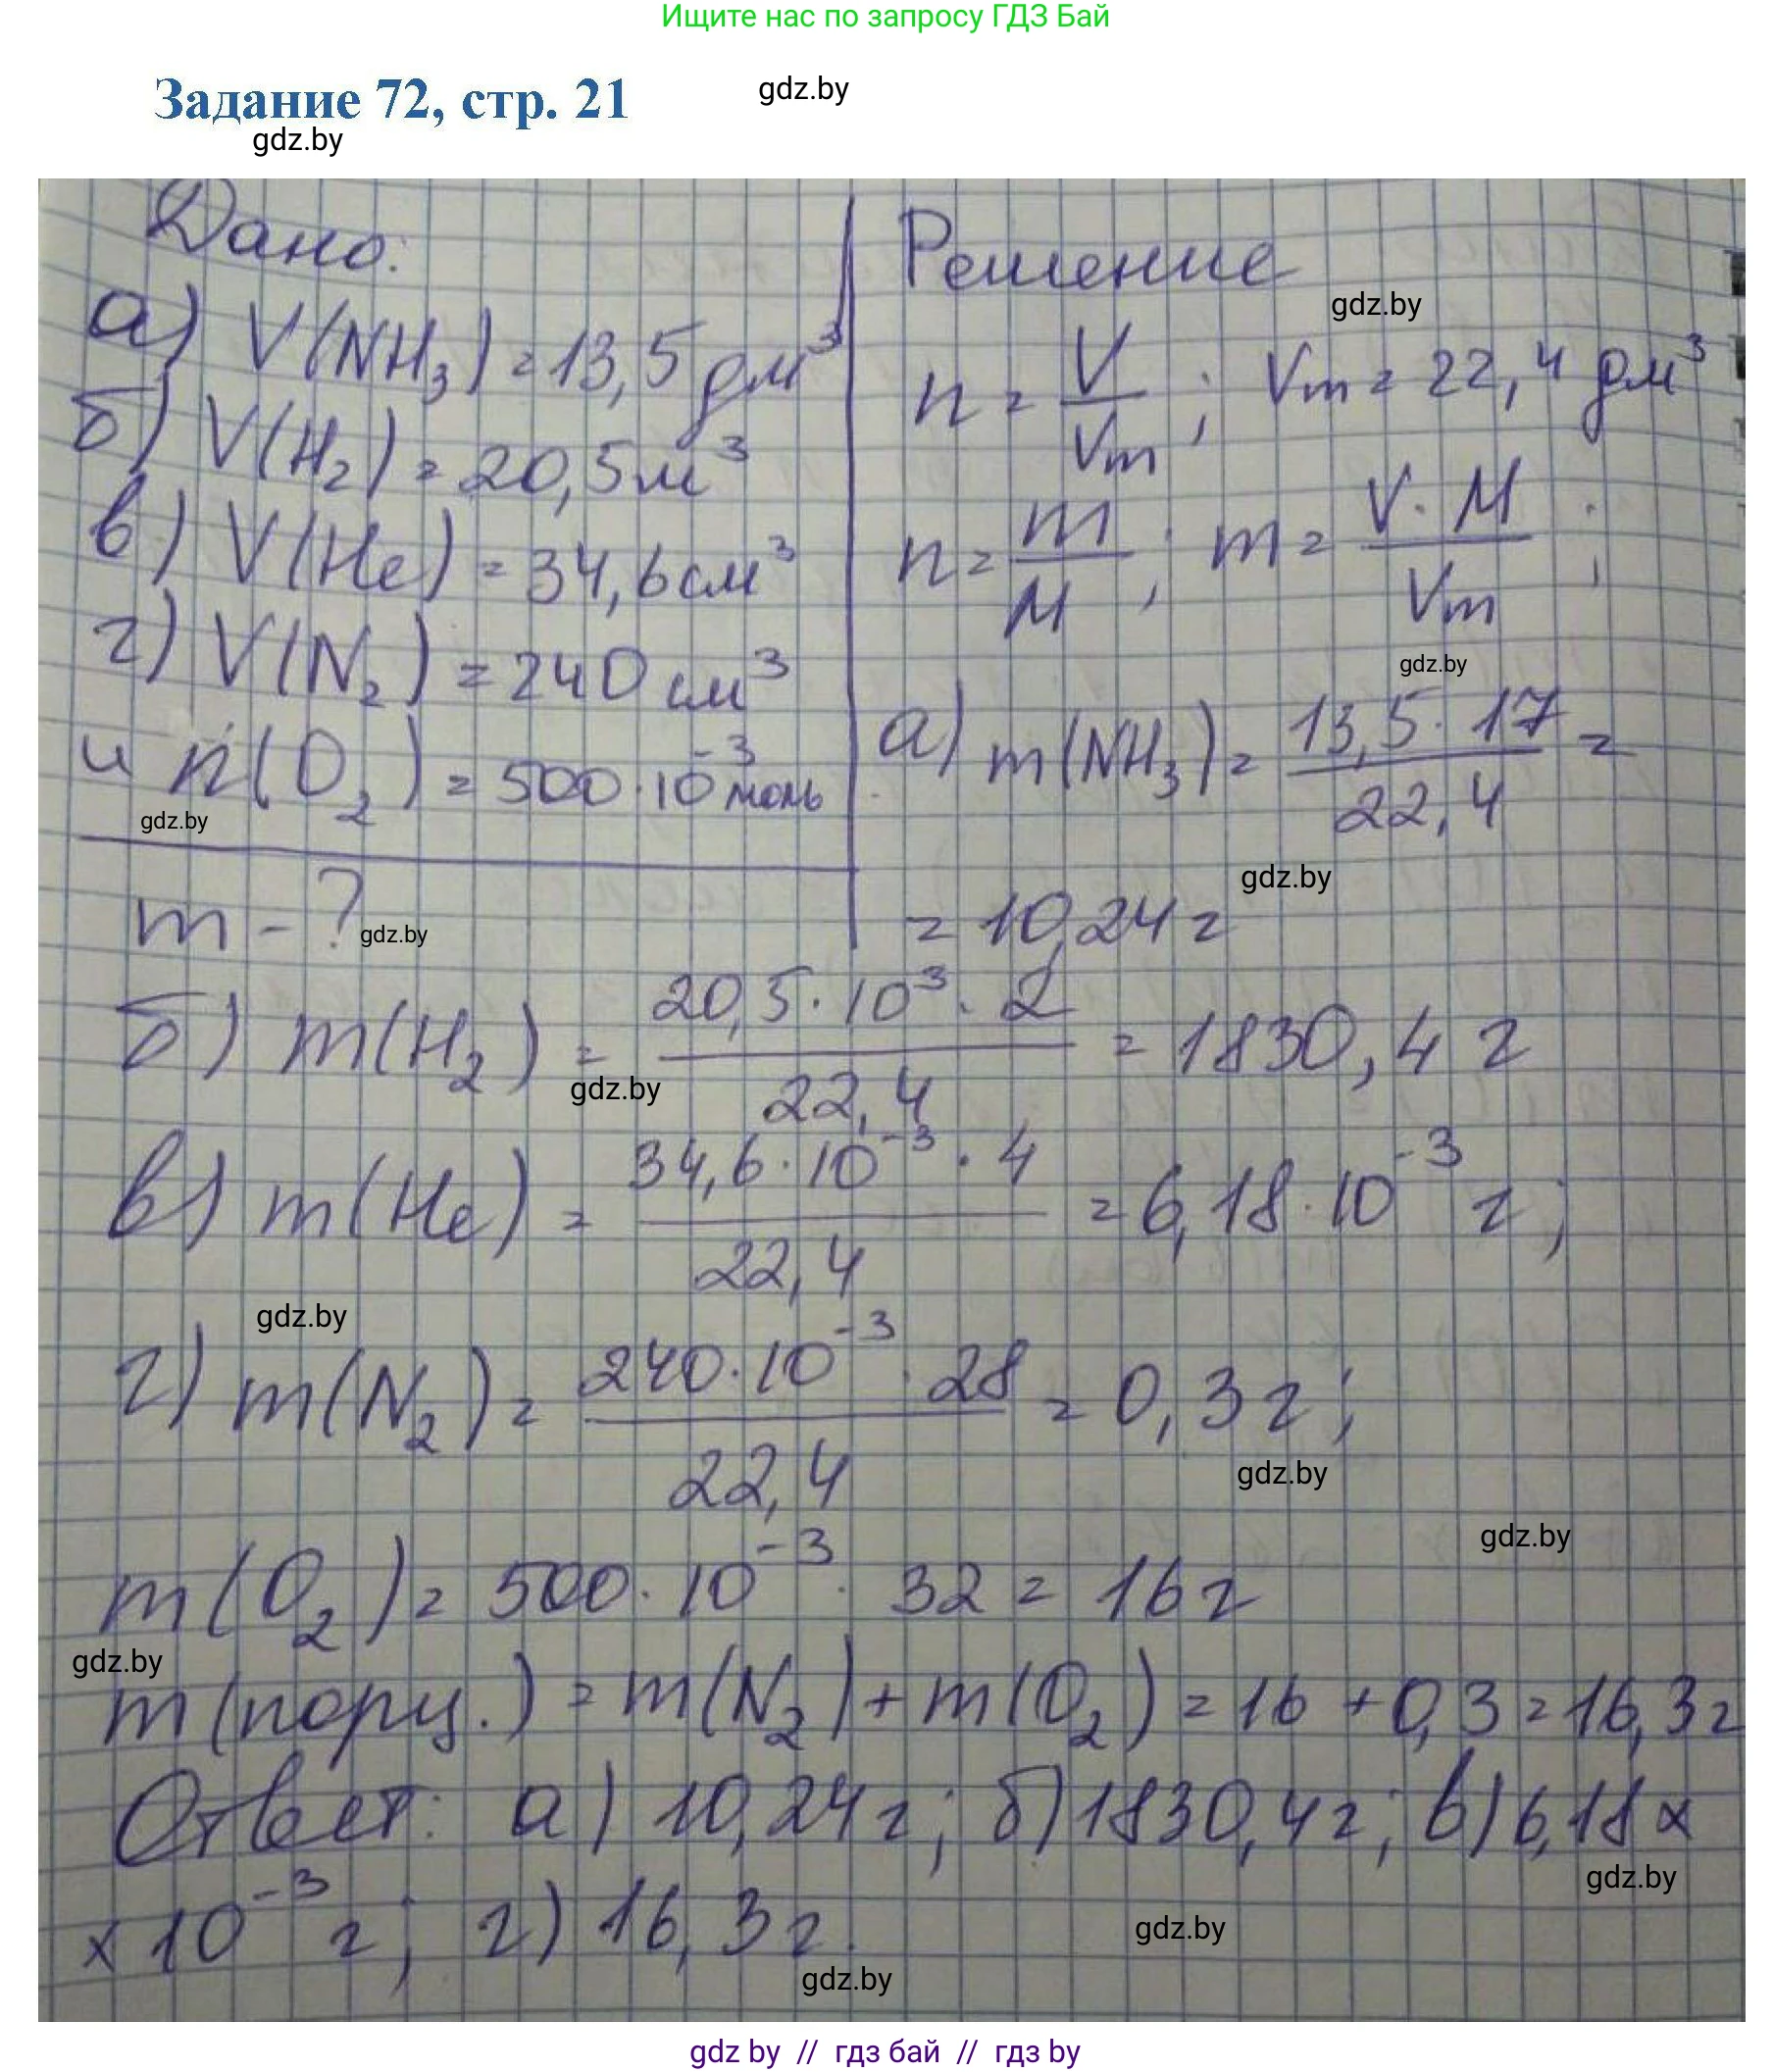 Ищите нас по запросу ГДЗ Бай
Задание 72, стр. 21
gdz.by
gdz.by
Дано:
а) V(NH₃) = 13,5 дм³
б) V(H₂) = 20,5 м³
в) V(He) = 34,6 см³
г) V(N₂) = 240 см³
и n(O₂) = 500·10⁻³ моль
gdz.by
m - ?
gdz.by
Решение
gdz.by
n = V/Vm ; Vm = 22,4 дм³
n = m/M ; m = V·M/Vm ;
gdz.by
а) m(NH₃) = 13,5·17/22,4 =
gdz.by
= 10,24 г
б) m(H₂) = 20,5·10³·2/22,4 = 1830,4 г
gdz.by
в) m(He) = 34,6·10⁻³·4/22,4 = 6,18·10⁻³ г;
gdz.by
г) m(N₂) = 240·10⁻³·28/22,4 = 0,3 г;
gdz.by
gdz.by
m(O₂) = 500·10⁻³·32 = 16 г
gdz.by
m(порц.) = m(N₂) + m(O₂) = 16 + 0,3 = 16,3 г
Ответ: а) 10,24 г; б) 1830,4 г; в) 6,18 ×
gdz.by
× 10⁻³ г; г) 16,3 г.
gdz.by
gdz.by
gdz by // гдз бай // гдз by